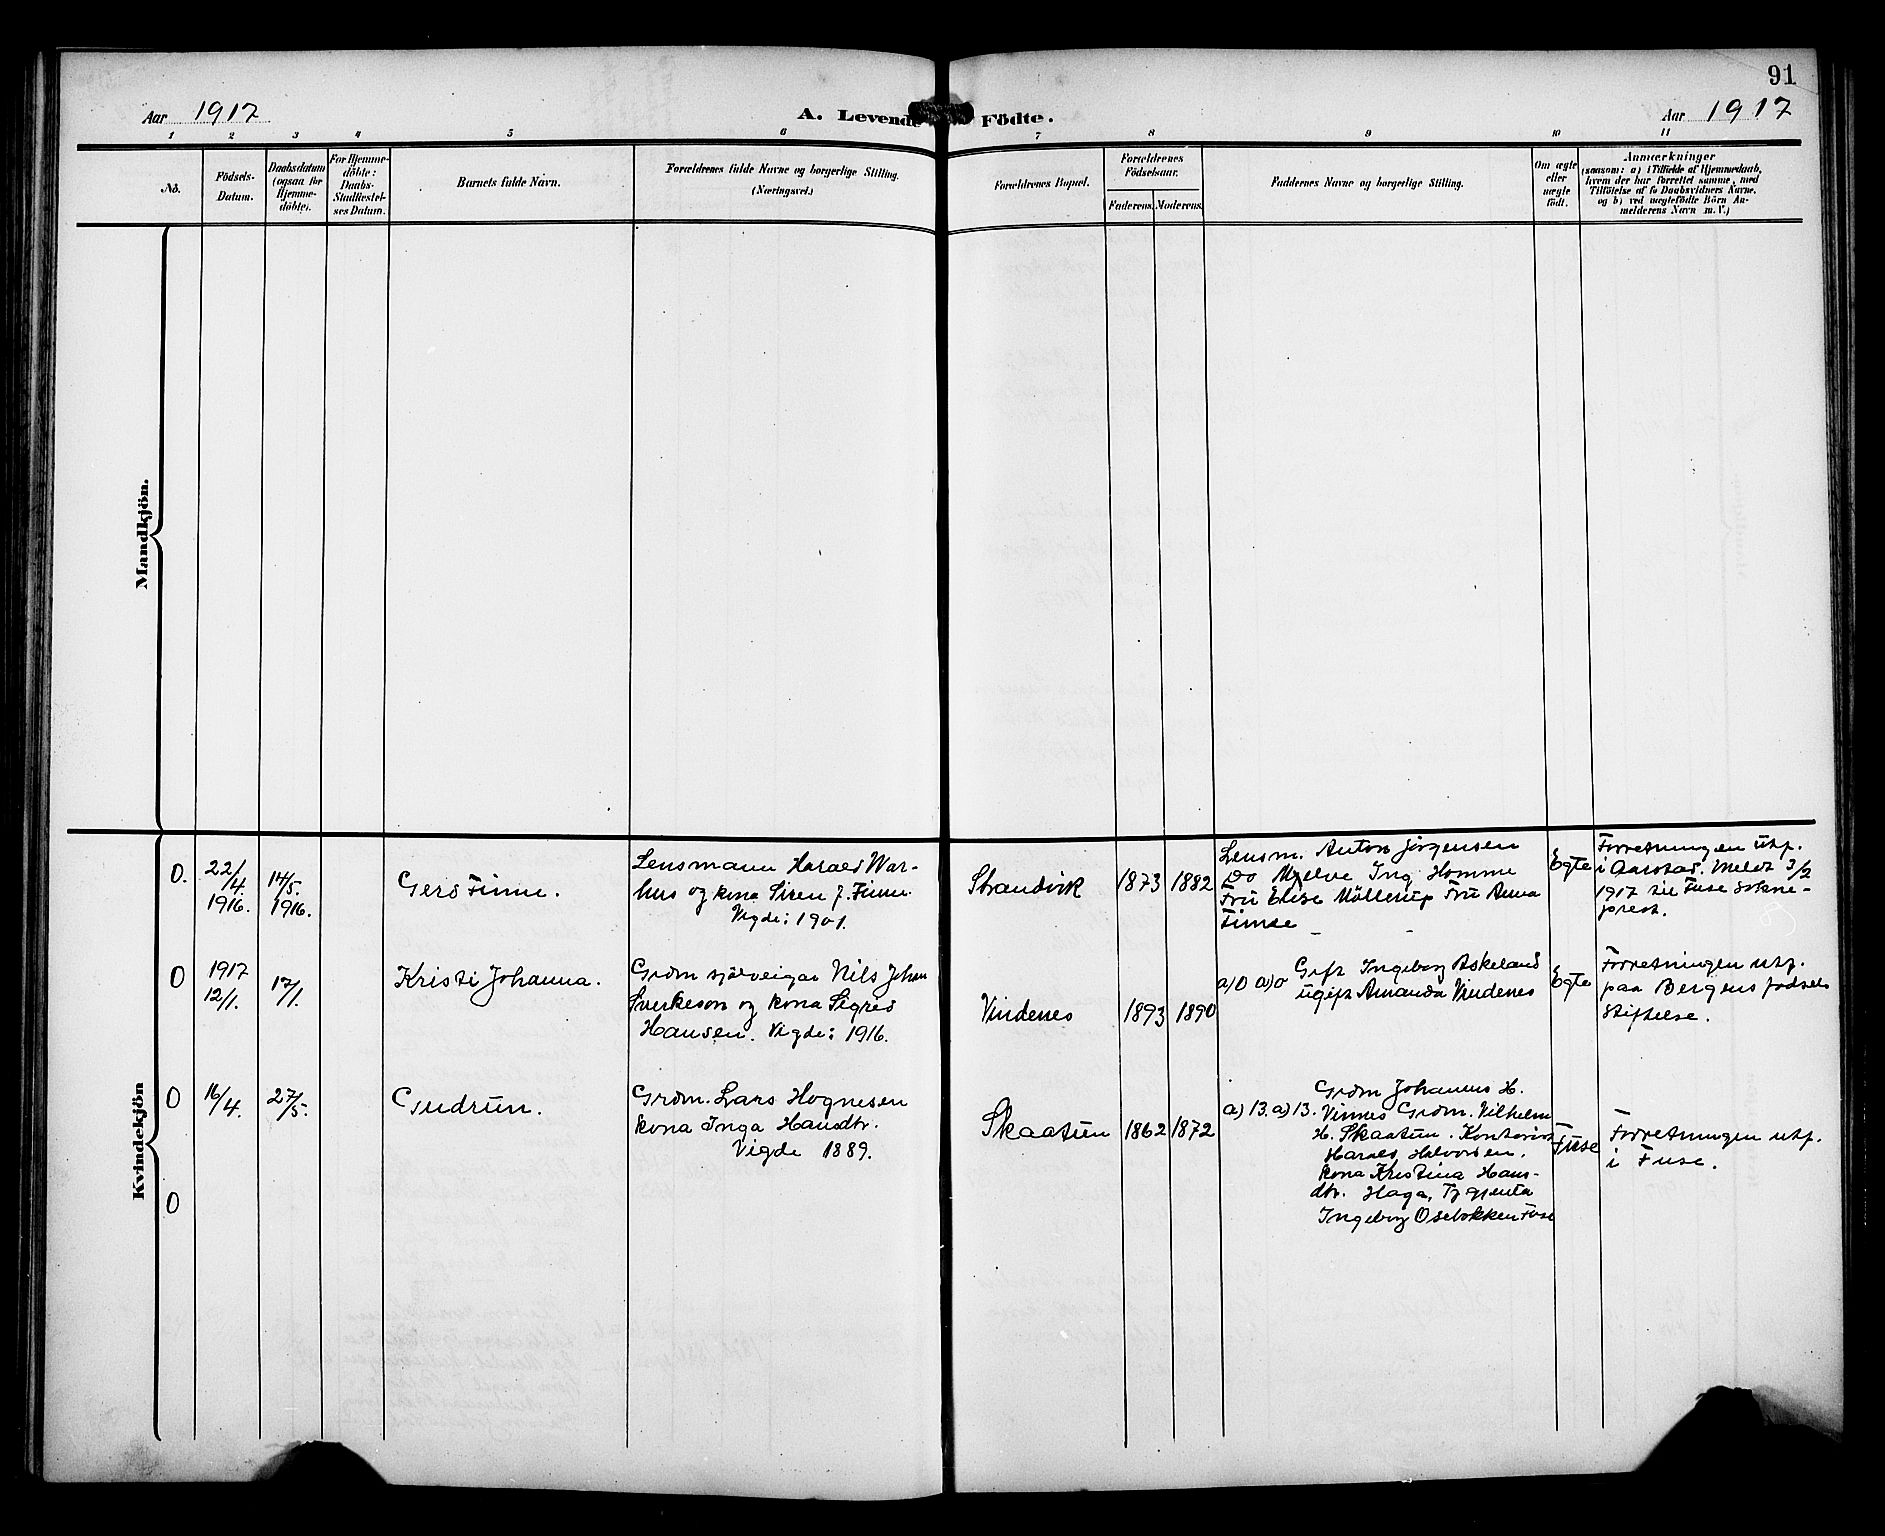 91
Aar 1917
A. Levende Födte.
Aar 1917
1 2 3 4 5 6 7 8 9 10 11
No.
Födsels-
Datum.
Daabsdatum
(ogsaa for
Hjemme-
döbte).
For Hjemme-
döbte:
Daabs-
Stadfæstel-
ses Datum.
Barnets fulde Navn.
Forældrenes fulde Navne og borgerlige Stilling.
(Næringsvei.)
Forældrenes Bopæl.
Forældrenes
Födselsaar.
Faderens. Moderens.
Faddernes Navne og borgerlige Stilling.
Om ægte
eller
uægte
födt.
Anmærkninger
(saasom: a) i Tilfælde af Hjemmedaab,
hvem der har forrettet samme, med
Tilföielse af to Daabsvidners Navne,
og b) ved uægtefödte Börn An-
melderens Navn m. V.)
Mandkjön.
Kvindekjön
0.
22/4.
1916.
14/5.
1916.
Gerd Finne.
Lensmann Harald War-
hus og kona Siren f. Finne.
Vigde: 1901.
Strandvik
1873 1882
Lensm. Anton Jörgensen
Do Mjelve Ing. Homme
Fru Elise Möllerup Fru Anna
Finne
Egte
Forretningen utf.
i Aarstad. Meldt 3/2
1917 til Fuse sokne-
prest.
0
1917
12/1.
17/1.
Kristi Johanna.
Grdm sjölveigar Nils Johan
Sverkeson og kona Sigrid
Hansen. Vigde: 1916.
Vindenes
1893 1890
a) 0 a) 0
Gift Ingeborg Askeland
ugift Amanda Vindenes
Egte
Forretningen utf.
paa Bergens födsels
stiftelse.
0
16/4.
27/5.
Gudrun.
Grdm. Lars Hognesen
kona Inga Hansdtr.
Vigde 1889.
Skaatun
1862 1872
a) 13. a) 13.
Grdm Johannes H.
Vinnes Grdm. Vilhelm
H. Skaatun. Kontorist
Harald Halvorsen.
kona Kristina Hans-
dtr. Haga, Tj gjenta
Ingeborg Osebakken Fuse
Fuse
Forretningen utf.
i Fuse.
0